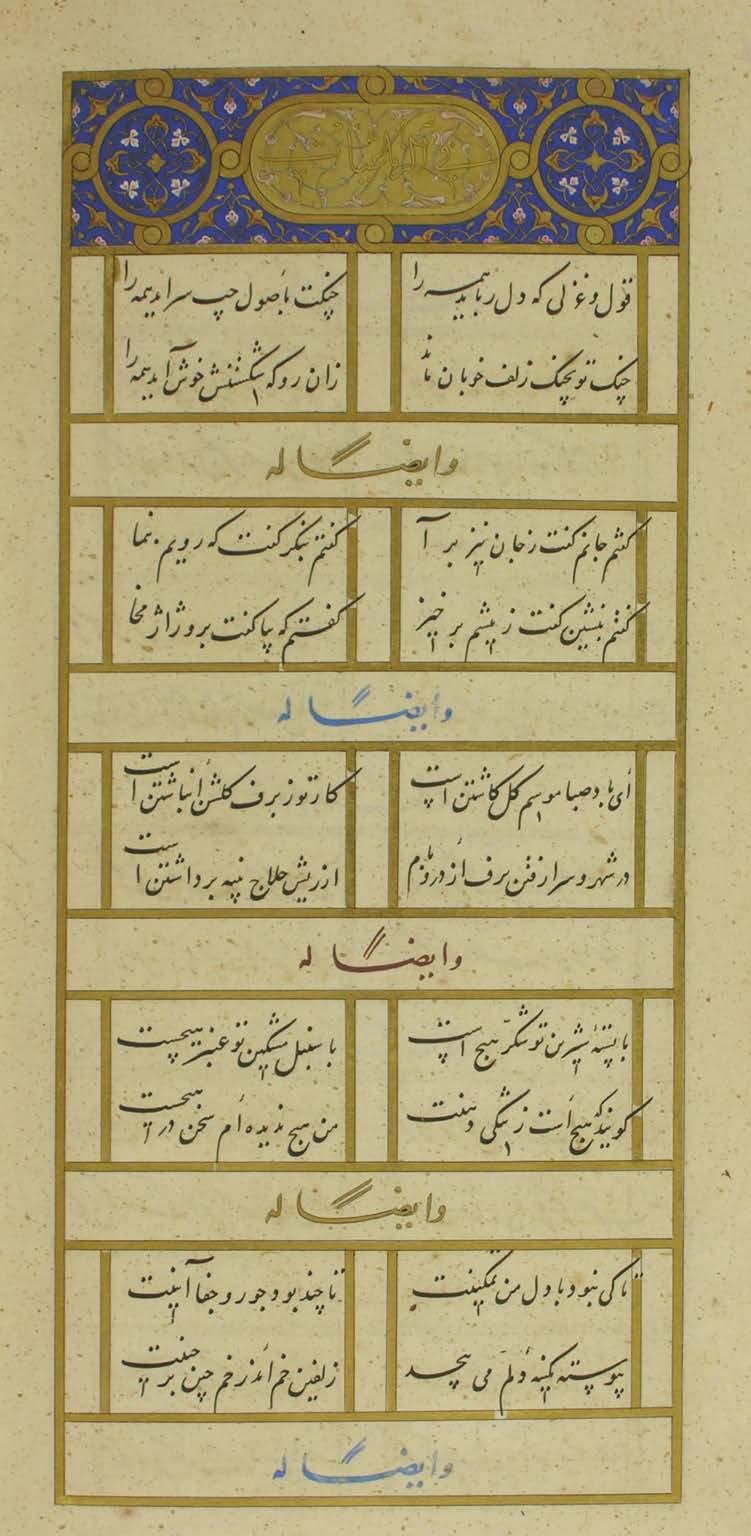 فی الرباعیات
قول و غزلی که دل رباید همه را چنگت باصول چپ سراید همه را
چنک تو بچنک زلف خوبان ماند زان رو که شکستنش خوش آید همه را
وایضاً له
گفتم جانم گفت ز جان نیز برآ گفتم بنگر گفت که رویم بنما
گفتم بنشین گفت ز پیشم برخیز گفتم که بیا گفت برو ژاژ مخا
وایضاً له
ای باد صبا موسم گل کاشتن است کار تو ز برف گلشن انباشتن است
در شهر و سرا رفتن برف از در و بام از ریش حلاج پنبه برداشتن است
وایضاً له
با پسته شیرین تو شکر هیچ است با سنبل مشکین تو عنبر هیچست
گویند که هیچ است ز تنگی دهنت من هیچ ندیده‌ام سخن در هیچست
وایضاً له
تا کی نبود با دل من تمکینت تا چند بود جور و جفا آیینت
پیوسته بکینه دلم می پیچد زلفین خم اندر خم چین بر چینت
وایضاً له